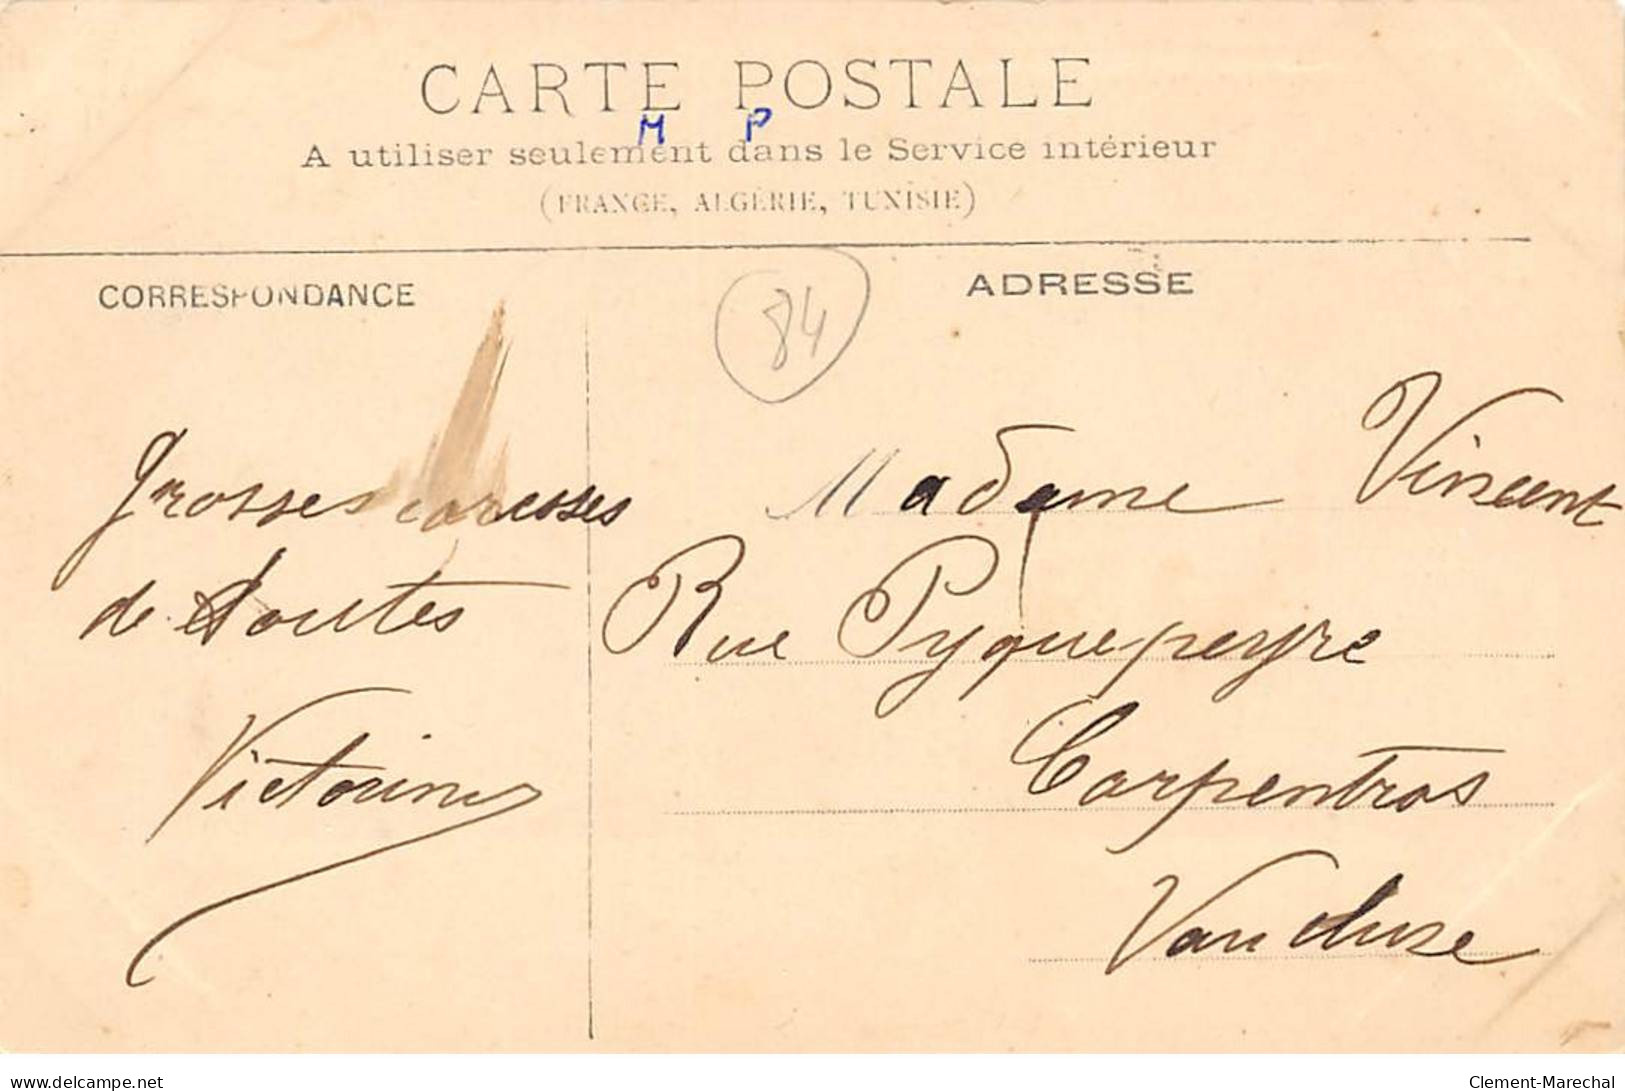 CARTE POSTALE
M P
A utiliser seulement dans le Service intérieur
(FRANCE, ALGÉRIE, TUNISIE)
CORRESPONDANCE
ADRESSE
84
Grosses caresses
de toutes
Victorine
Madame Vincent
Rue Pyquepeyre
Carpentras
Vaucluse
www.delcampe.net
Clement-Marechal